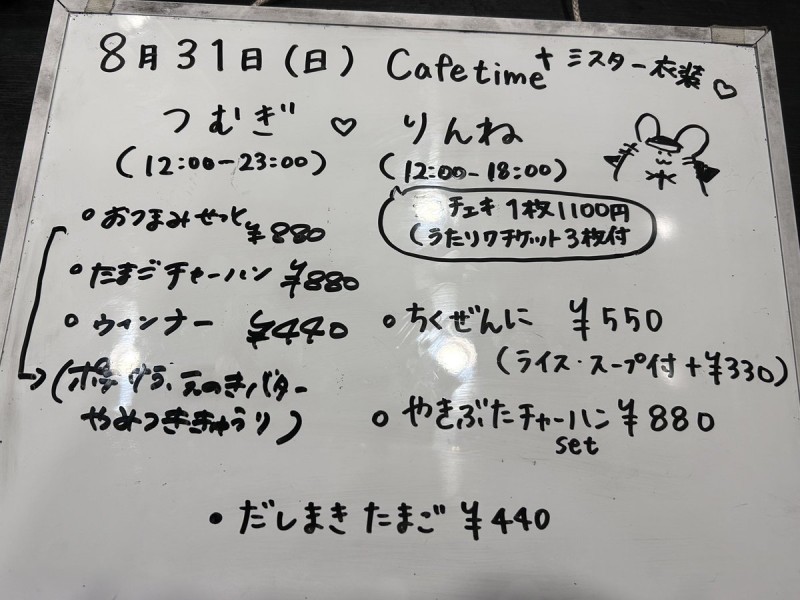 8月31日(日) Cafetime + ミスター衣装♡
つむぎ ♡ りんね
(12:00-23:00)
(12:00-18:00)
チェキ 1枚1100円
(うたリクチケット3枚付
・おつまみせっと ¥880
・たまごチャーハン ¥880
・ウィンナー ¥440
→(ポテサラ、えのきバター
やみつききゅうり)
・ちくぜんに ¥550
(ライス・スープ付 +¥330)
・やきぶたチャーハン ¥880
set
・だしまきたまご ¥440